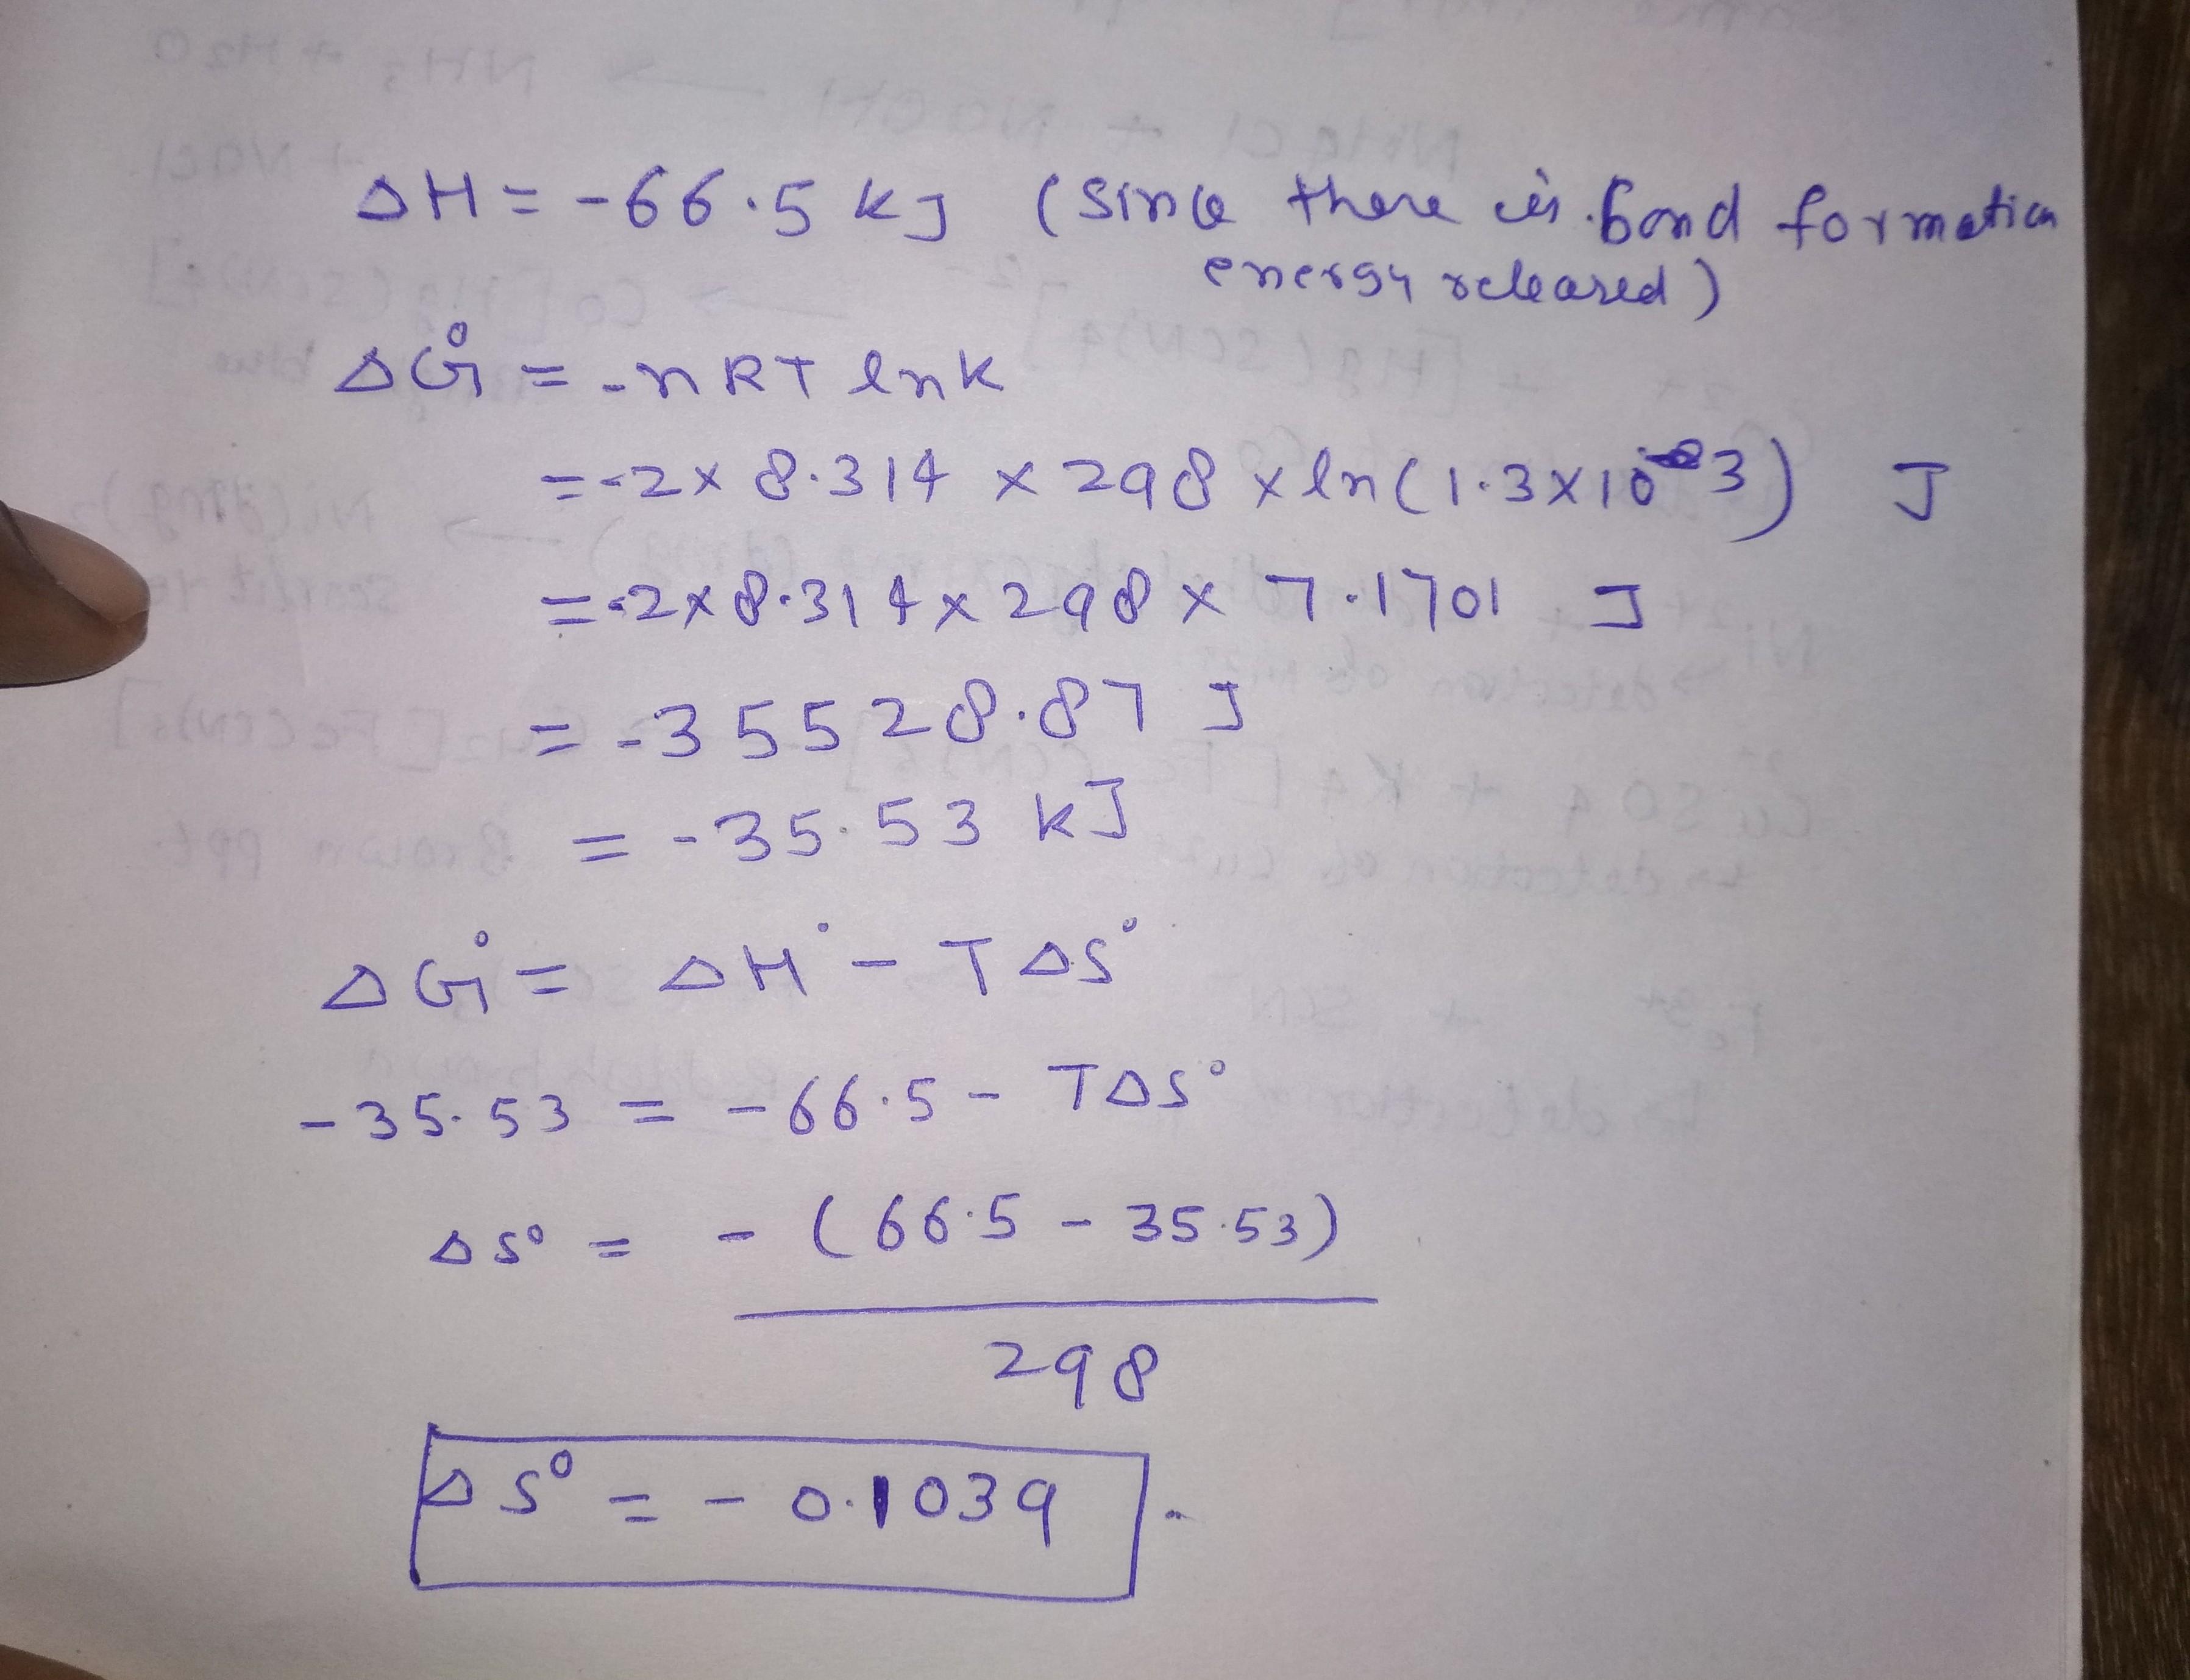 ΔH = -66.5 kJ (Since there is bond formation
energy released)
ΔG° = -nRT lnK
= -2 × 8.314 × 298 × ln(1.3×10³) J
= -2×8.314×298 × 7.1701 J
= -35528.87 J
= -35.53 kJ
ΔG° = ΔH° - TΔS°
-35.53 = -66.5 - TΔS°
ΔS° = - (66.5 - 35.53)
298
ΔS° = - 0.1039